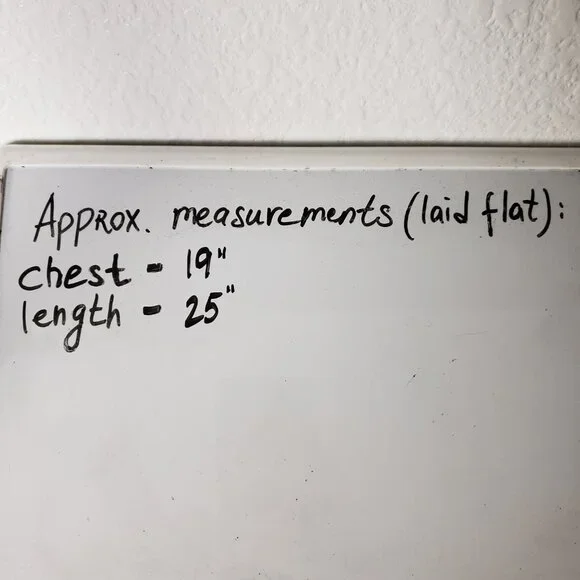 Approx. measurements (laid flat):
chest - 19"
length - 25"